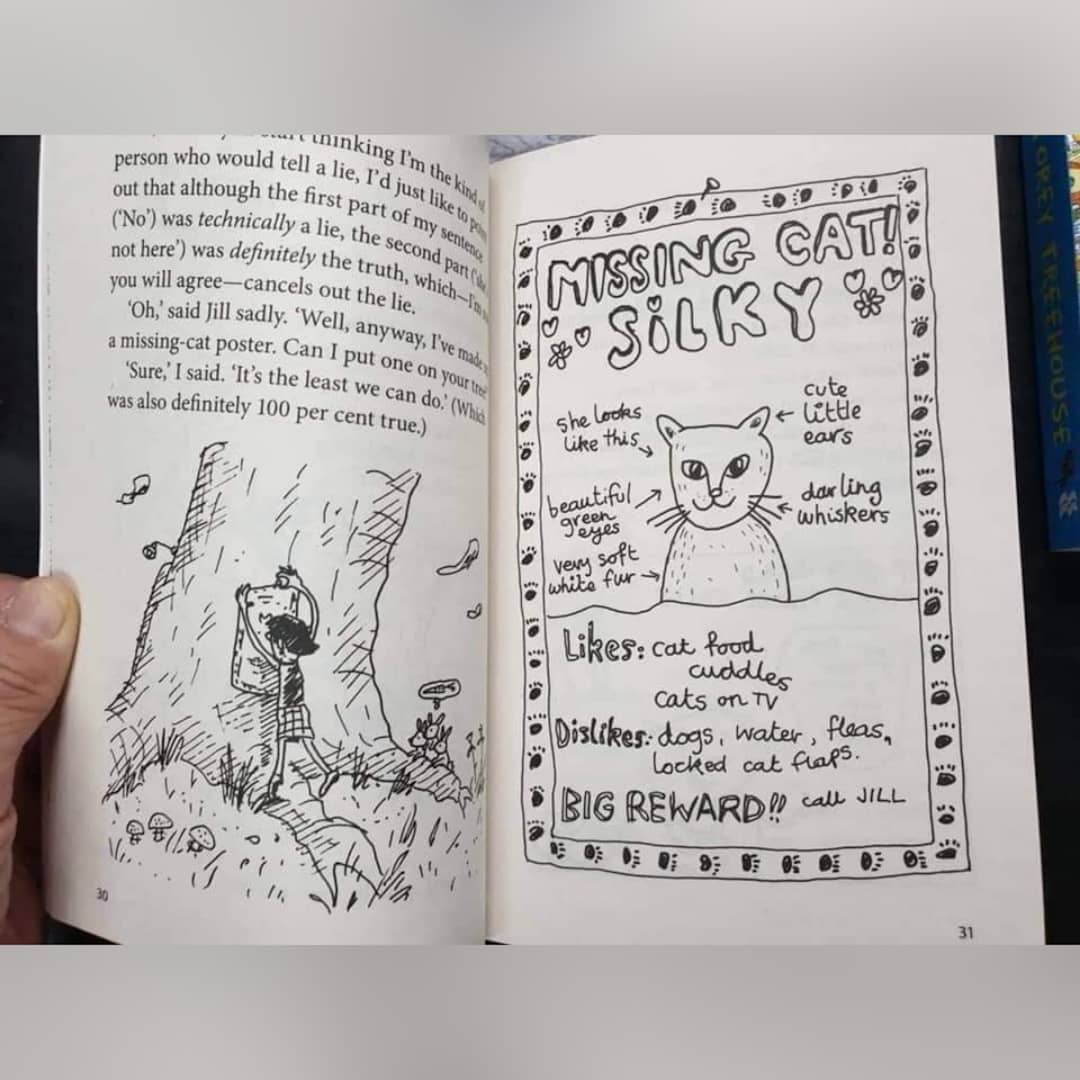 start thinking I'm the kind of
person who would tell a lie, I'd just like to point
out that although the first part of my sentence
('No') was technically a lie, the second part ('she
not here') was definitely the truth, which—I'm
you will agree—cancels out the lie.
'Oh,' said Jill sadly. 'Well, anyway, I've made
a missing-cat poster. Can I put one on your tree?'
'Sure,' I said. 'It's the least we can do.' (Which
was also definitely 100 per cent true.)
30
MISSING CAT!
SiLKY
she looks
like this
cute
little
ears
beautiful
green
eyes
darling
whiskers
very soft
white fur
Likes: cat food
cuddles
cats on TV
Dislikes: dogs, water, fleas,
locked cat flaps.
BIG REWARD!! call JILL
31
OREY TREEHOUSE